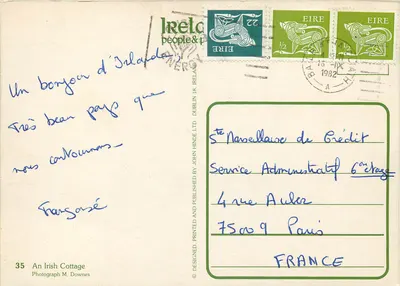 Irelan
people & p
EIRE
22
EIRE
EIRE
ENERGY
BAILE
1982
A
Un bonjour d'Irlande
Très beau pays que
nous contournons
Françoise
Sté Marseillaise du Crédit
Service Administratif 6e étage
4 rue Auber
75009 Paris
FRANCE
© DESIGNED, PRINTED AND PUBLISHED BY JOHN HINDE LTD. DUBLIN 14, IRELAND
35 An Irish Cottage
Photograph M. Downes